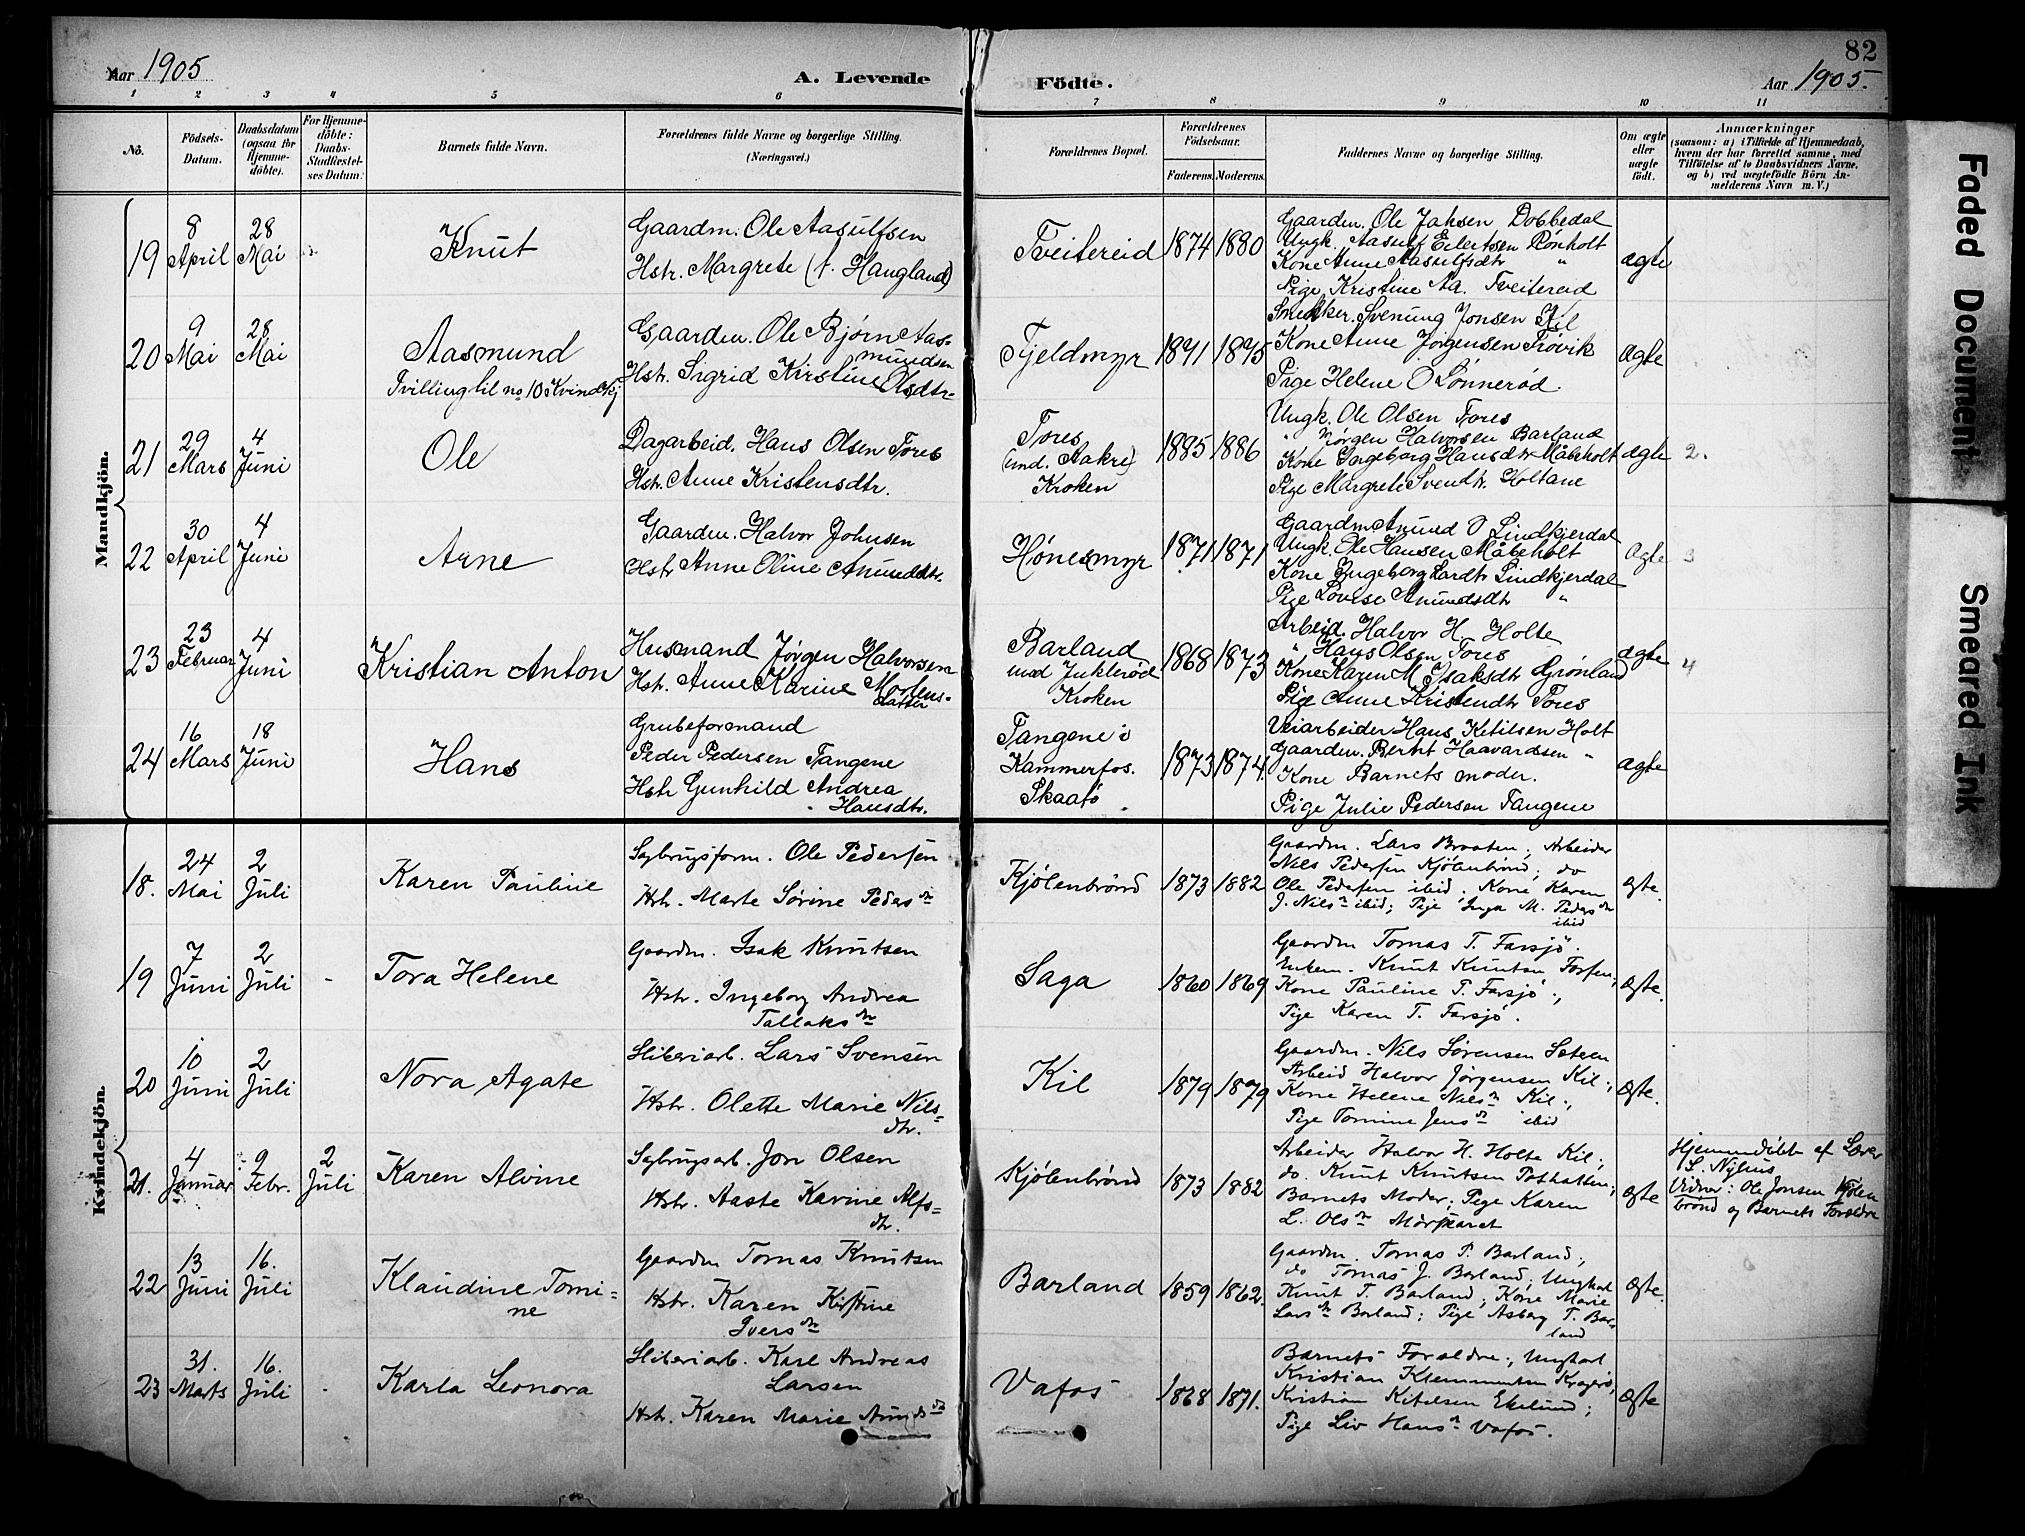 82
Aar 1905
A. Levende
Födte.
Aar 1905.
1 2 3 4 5 6 7 8 9 10 11
No.
Födsels-Datum.
Daabsdatum (ogsaa for Hjemme-döbte).
For Hjemme-döbte: Daabs-Stadfæstel-ses Datum.
Barnets fulde Navn.
Forældrenes fulde Navne og borgerlige Stilling. (Næringsvei.)
Forældrenes Bopæl.
Forældrenes Födselsaar.
Faderens. Moderens.
Faddernes Navne og borgerlige Stilling.
Om ægte eller uægte födt.
Anmærkninger
(saasom: a) i Tilfælde af Hjemmedaab, hvem der har forrettet samme, med Tilföielse af to Daabsvidners Navne, og b) ved uægtefödte Börn An-melderens Navn m. V.)
Mandkjön.
19
8 April
28 Mai
Knut
Gaardm. Ole Aasulfsen
Hstr. Margrete (f. Haugland)
Tveitereid
1874 1880
Gaardm. Ole Jaksen Dobbedal
Ungk. Aasulf Eilertsen Rönholt
Kone Anne Aasulfsdtr "
Pige Kristine Aa. Tveitereid
ægte
20
9 Mai
28 Mai
Aasmund
Tvilling til no 10 Kvindekj
Gaardm. Ole Bjørn Aas-
mundsen
Hstr. Sigrid Kirstine Olsdtr
Fjeldmyr
1871 1875
Snedker. Svenung Jonsen Kil
Kone Anne Jørgensen Frøvik
Pige Helene O Lønnerød
ægte
21
29 Mars
4 Juni
Ole
Dagarbeid. Hans Olsen Fores
Hstr. Anne Kristensdtr.
Fores
(und. Aakre)
Kroken
1885 1886
Ungk. Ole Olsen Fores
" Jørgen Halvorsen Barland
Kone Ingeborg Hansdtr Måbeholt
Pige Margrete Svendtr. Holtane
ægte
2.
22
30 April
4 Juni
Arne
Gaardm. Halvor Johnsen
Hstr Anne Oline Anundsdtr.
Hönesmyr
1871 1871
Gaardm Anund O Lindkjerdal
Ungk. Ole Hansen Måbeholt
Kone Ingeborg Larsdtr Lindkjerdal
Pige Lovise Anundsdtr "
ægte
3
23
23 Februar
4 Juni
Kristian Anton
Husmand Jørgen Halvorsen
Hstr. Anne Karine Mortens-
datter
Barland
med Juklerød
Kroken
1868 1873
Arbeid. Halvor H. Holte
" Hans Olsen Fores
Kone Karen M Isaksdtr Grönland
Pige Anne Kristendtr Fores
ægte
4
24
16 Mars
18 Juni
Hans
Grubeformand
Peder Pedersen Tangene
Hstr Gunhild Andrea
Hansdtr.
Tangene i
Kammerfos.
Skaatö
1873 1874.
Veiarbeider Hans Ketilsen Holt
Gaardm. Bernt Haavardsen "
Kone Barnets moder.
Pige Julie Pedersen Tangene
ægte
Kvindekjön.
18.
24 Mai
2 Juli
Karen Pauline
Sagbrugsform. Ole Pedersen
Hstr. Marte Sørine Peders dtr
Kjölenbrönd
1873 1882
Gaardm. Lars Braaten; Arbeider
Nils Pedersen Kjölenbrönd; do
Ole Pedersen ibid. Kone Karen
J. Nilsn ibid; Pige Inga M. Peders dtr
ibid
ægte.
19
7 Juni
2 Juli
-
Tora Helene
Gaardm. Isak Knutsen
Hstr. Ingeborg Andrea
Tallaks dtr
Saga
1860 1869
Gaardm Tomas T. Farsjö.
Enkem. Knut Knutsen Forsen;
Kone Pauline T. Farsjö.,
Pige Karen T. Farsjö.
Ægte.
20
10 Juni
2 Juli
Nora Agate
Sliberiarb. Lars Svensen
Hstr. Olette Marie Nils-
dtr.
Kil
1879 1879
Gaardm. Nils Sørensen Sæteren
Arbeid Halvor Jørgensen Kil.,
Kone Helene Nilsn Kil.,
Pige Tomine Jensn ibid
Ægte.
21.
4 Januar
9 Febr.
2 Juli
Karen Alvine
Sagbrugsarb. Jon Olsen
Hstr. Aaste Karine Alfs-
dtr.
Kjölenbrönd
1873 1882
Arbeider Halvor H. Holte Kil.;
do. Knut Knutsen Pothatten;
Barnets Moder; Pige Karen
L. Olsn Mörkaret
ægte
Hjemmedöbt af Lærer
L. Nylius
Vidner: Ole Jonsen Kjölen
brönd og Barnets Forældre
22
13 Juni
16. Juli
Klaudine Tomi-
ne
Gaardm Tomas Knutsen
Hstr. Karen Kirstine
Ivers dtr
Barland
1859 1862.
Gaardm. Tomas P. Barland;
do Tomas J. Barland; Ungkarl
Knut T. Barland; Kone Marie
Larsn Barland; Pige Asberg T. Bar
land
Ægte.
23
31. Marts
16. Juli
-
Karla Leonora
Sliberiarb. Karl Andreas
Larsen
Hstr. Karen Marie
Vafos
1868 1871.
Barnets Forældre.; Ungkarl
Kristian Klemmetsen Kragerö,
Kristian Kittelsen Ekelund;
Pige Liv Hansn Vafos.
Ægte
Faded Document
Smeared Ink